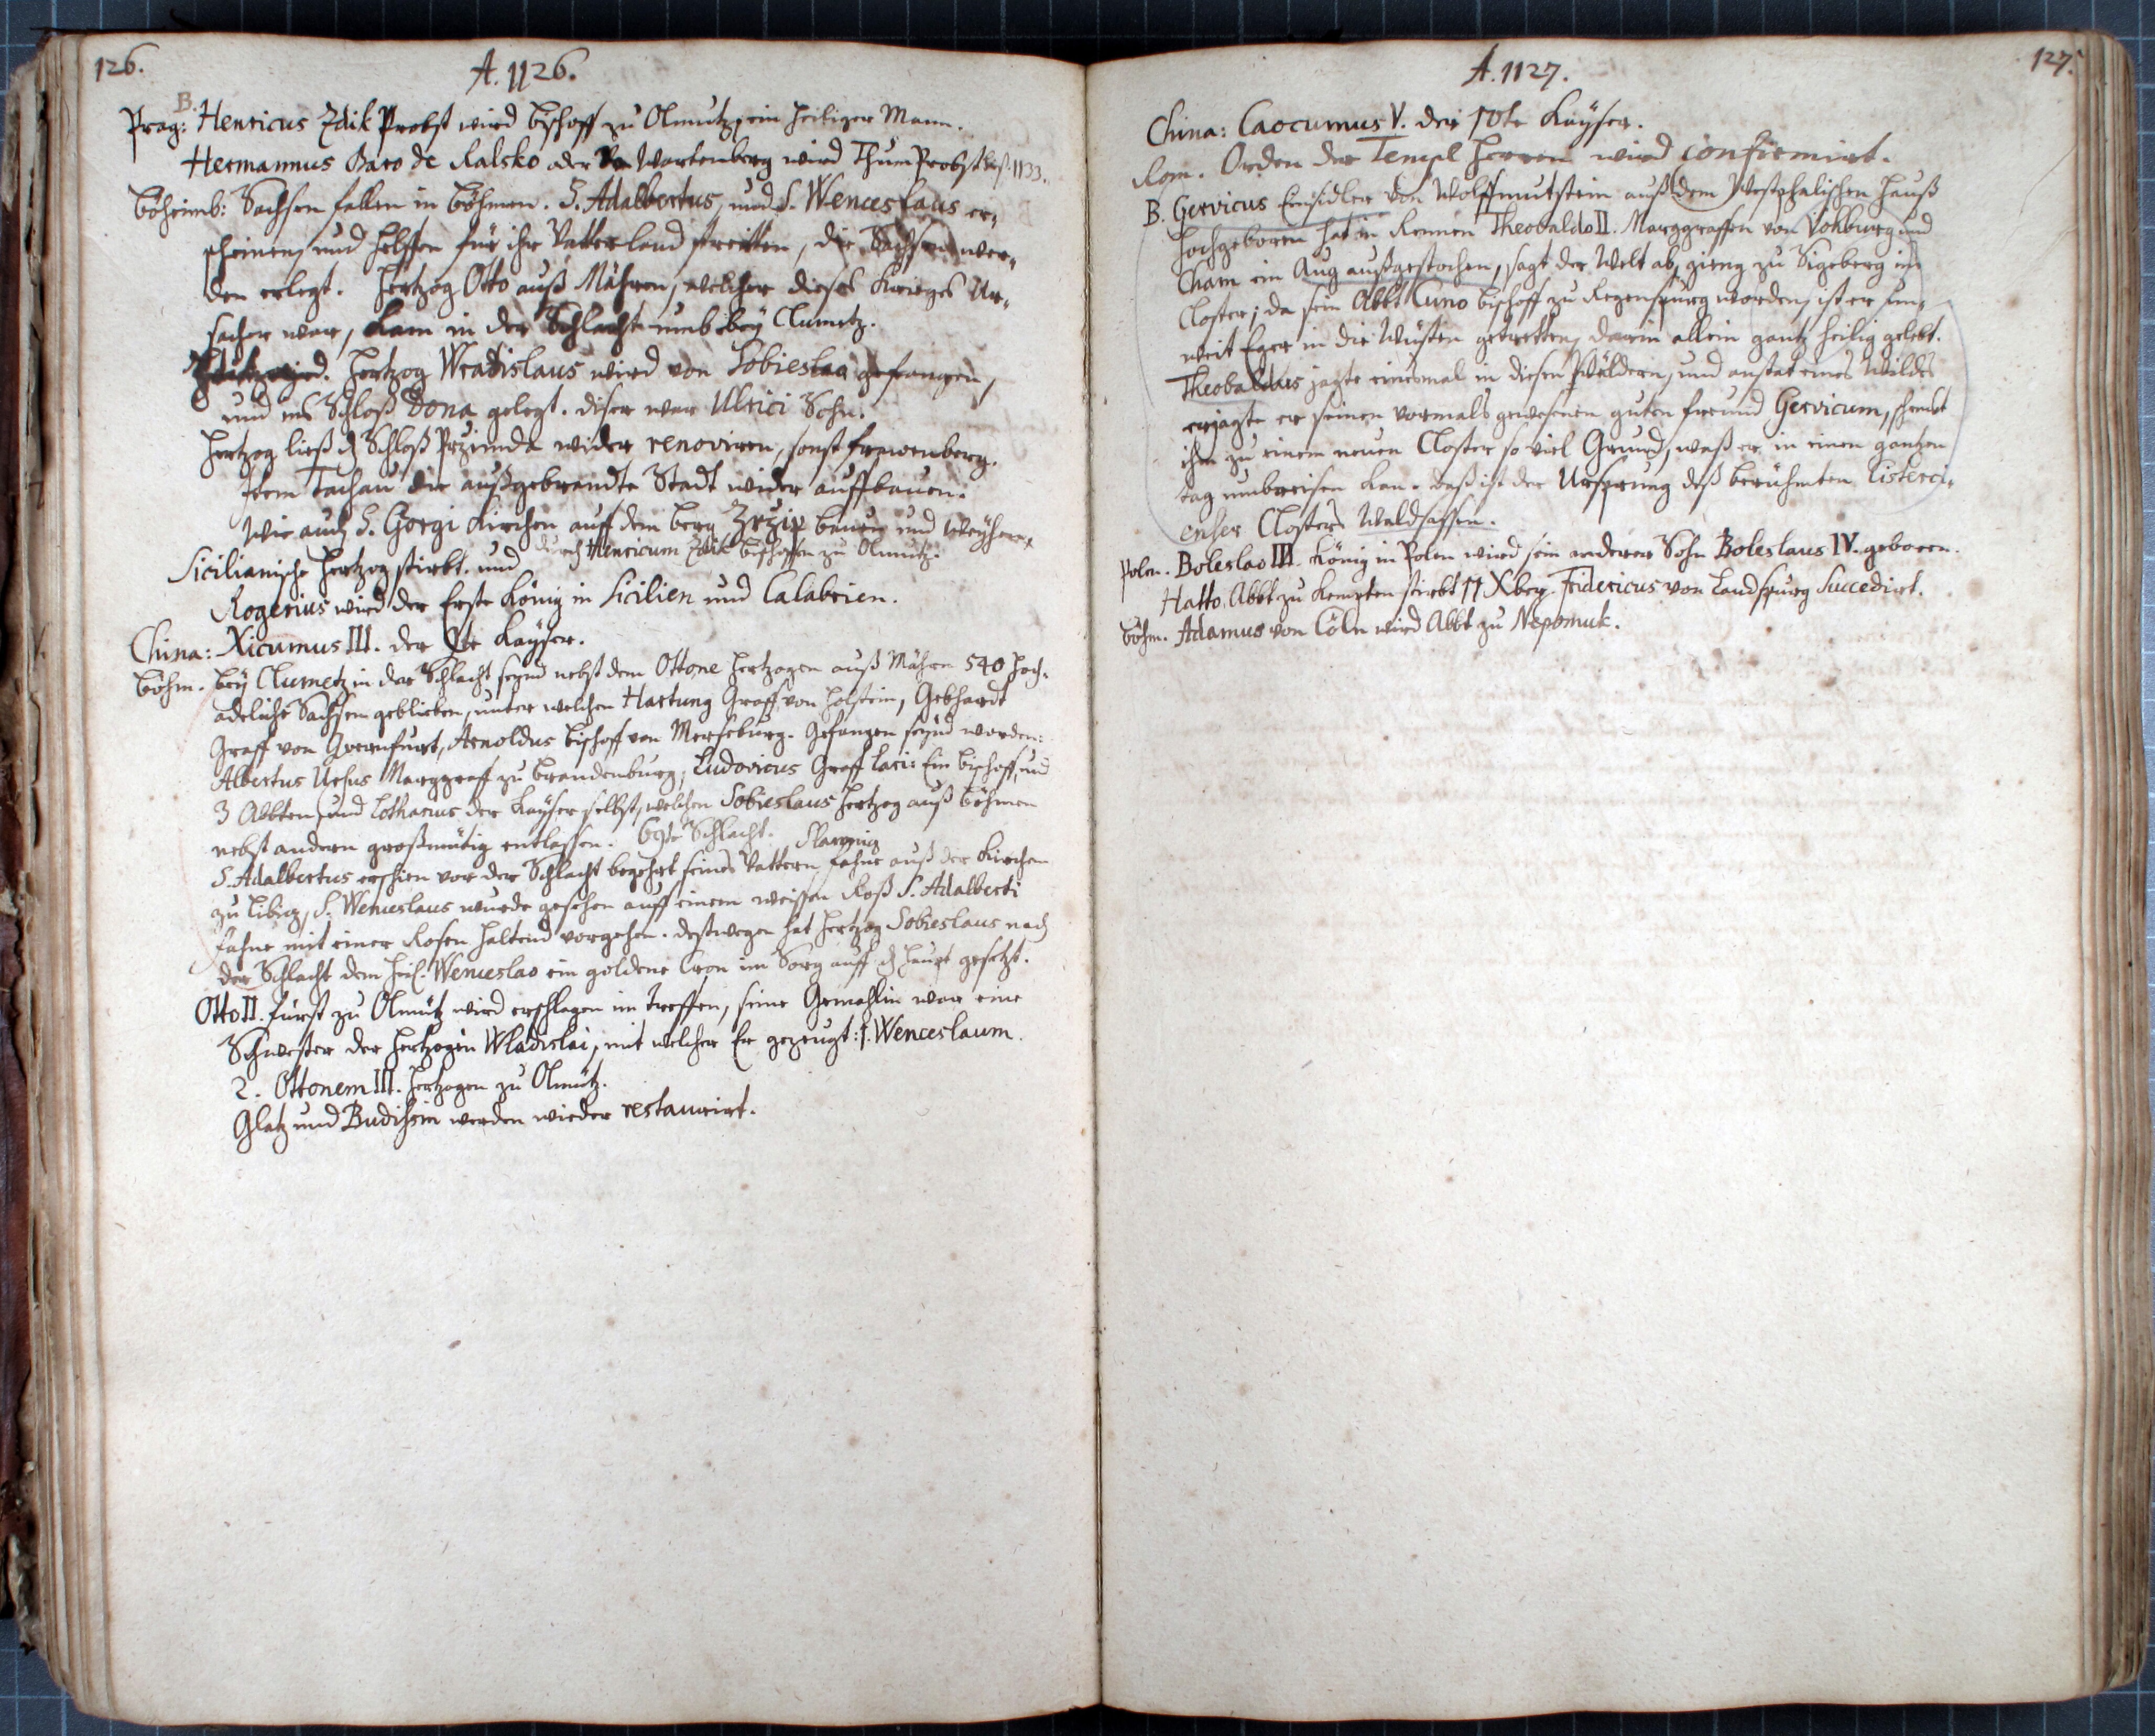 126.
A. 1126.
B.
Prag: Henricus Zdik Probst wird Bischoff zu Olmutz, ein heiliger Mann.
Hermannus Baro de Ralsko oder Wartenberg wird Thum Probst biß 1133.
Böheimb: Sachsen fallen in Böhmen. S. Adalbertus, und S. Wenceslaus er-
scheinen, und helffen für ihr Vatterland streitten, die Sachsen wer-
den erlegt. Hertzog Otto auß Mähren, welcher dieses Krieges Ur-
sacher war, kam in der Schlacht umb bey Clumetz.
Hertzog Wratislaus wird von Sobieslao gefangen,
und ins Schloß Dona gelegt. diser war Ulrici Sohn.
Hertzog ließ dz Schloß Przimda wider renoviren, sonst Frawenberg.
Item Tachau die außgebrandte Stadt wider auffbauen.
Wie auch S. Georgi Kirchen auff dem berg Zrzip bauen und weyhen
durch Henricum Zdik Bischoffen zu Olmutz.
Sicilianische Hertzog stirbt. und
Rogerius wird der Erste König in Sicilien und Calabrien.
China: Xicumus III. der Kayser.
Böhm. bey Clumetz in der Schlacht seynd nebst dem Ottone Hertzogen auß Mähren 540 hoch-
adeliche Sachsen geblieben, unter welchen Hartung Graff von Holstein, Gebhardt
Graff von Querenfurt, Arnoldus Bischoff von Merseburg. Gefangen seynd worden:
Albertus Ursus Marggraff zu Brandenburg, Ludovicus Graff Ein Bischoff, und
3 Abbten, und Lotharius der Kayser selbst, welchen Sobieslaus Hertzog auß Böhmen
nebst andern großmütig entlassen. 69te Schlacht.
Slavnig
S. Adalbertus erschien vor der Schlacht begehrt seines Vattern Fahne auß der Kirchen
zu Libitz, S. Wenceslaus wurde gesehen auff einem weissen Roß S. Adalberti
Fahne mit einer Rosen haltend vorgehen. destwegen hat Hertzog Sobieslaus nach
der Schlacht dem Heil. Wenceslao ein goldene Cron im Sarg auff dz Haupt gesetzt.
Otto II. Fürst zu Olmütz wird erschlagen im Treffen, seine Gemahlin war eine
Schwester der Hertzogin Wladislai, mit welcher Er gezeugt: 1. Wenceslaum.
2. Ottonem III. Hertzogen zu Olmütz.
Glatz und Budissin werden wieder restaurirt.
127.
A. 1127.
China: Caocumus V. der 10te Kayser.
Rom. Orden der Tempel Herren wird confirmirt.
B. Gervicus Einsidler von Wolffmutstein auß dem Westphalischen Hauß
hochgeboren hat in Rennen Theobaldo II. Marggraffen von Vohburg und
Cham ein Aug außgestochen, sagt der Welt ab, gieng zu Sigeberg ins
Closter; da sein Abbt Cuno Bischoff zu Regenspurg worden, ist er un-
weit Eger in die Wüsten getretten, darin allein gantz heilig gelebt.
Theobaldus jagte einsmal in diesen Wäldern, und anstat eines Wildes
erjagte er seinen vormals gewesenen guten freund Gervicum, schenckt
ihm zu einem neuen Closter so viel Grund, waß er in einen gantzen
tag umbreisen kan. daß ist der Ursprung deß berühmten Cisterci-
enser Closters Waldsassen.
Polen. Boleslao III. König in Polen wird sein anderer Sohn Boleslaus IV. geboren.
Hatto Abbt zu Kempten stirbt 11 Xber. Fridericus von Landspurg succedirt.
Böhm. Adamus von Cöln wird Abbt zu Nepomuk.